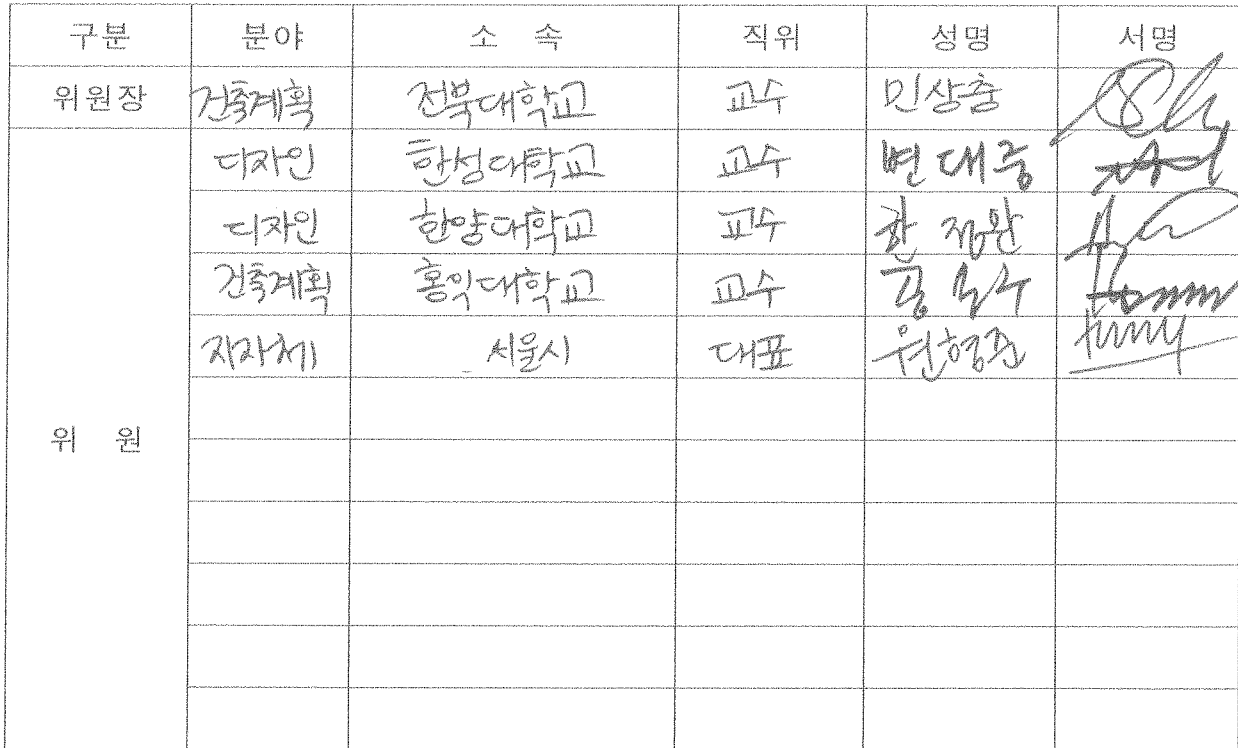 구분 분야 소 속 직위 성명 서명
위원장 건축계획 전북대학교 교수 민상충
디자인 한성대학교 교수 변대중
디자인 한양대학교 교수 한정완
건축계획 홍익대학교 교수
지자체 서울시 대표 원형준
위 원